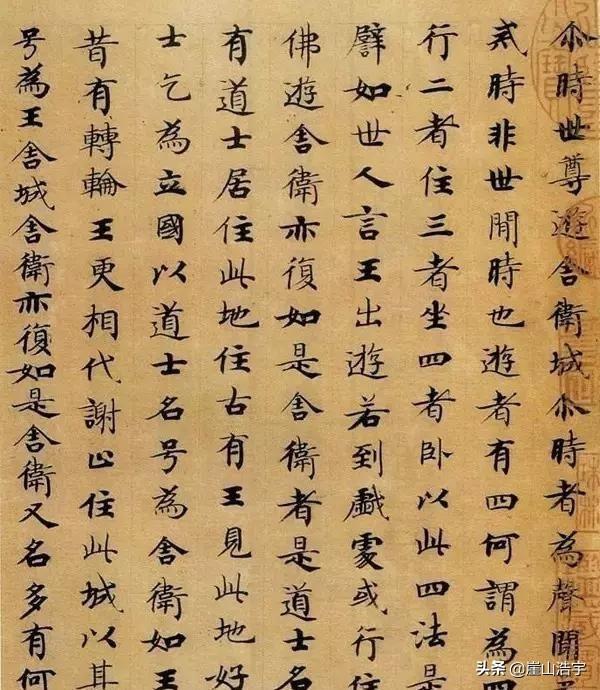 尒時世尊遊舍衛城尒時者為聲聞
戒時非世間時也遊者有四何謂為四
行二者住三者坐四者卧以此四法是
譬如世人言王出遊若到戲處或行住
佛遊舍衛亦復如是舍衛者是道士名
有道士居住此地住古有王見此地好
士乞為立國以道士名号為舍衛如王
昔有轉輪王更相代謝止住此城以其
号為王舍城舍衛亦復如是舍衛又名多有何
头条 @崖山浩宇